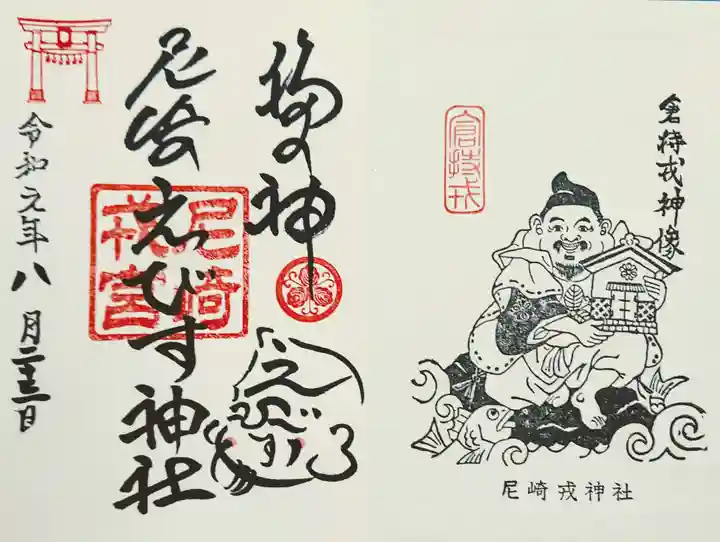 倉持戎神像
倉持戎
尼崎戎神社
福の神
尼崎えびす神社
尼崎
戎宮
えびす
令和元年八月二十三日